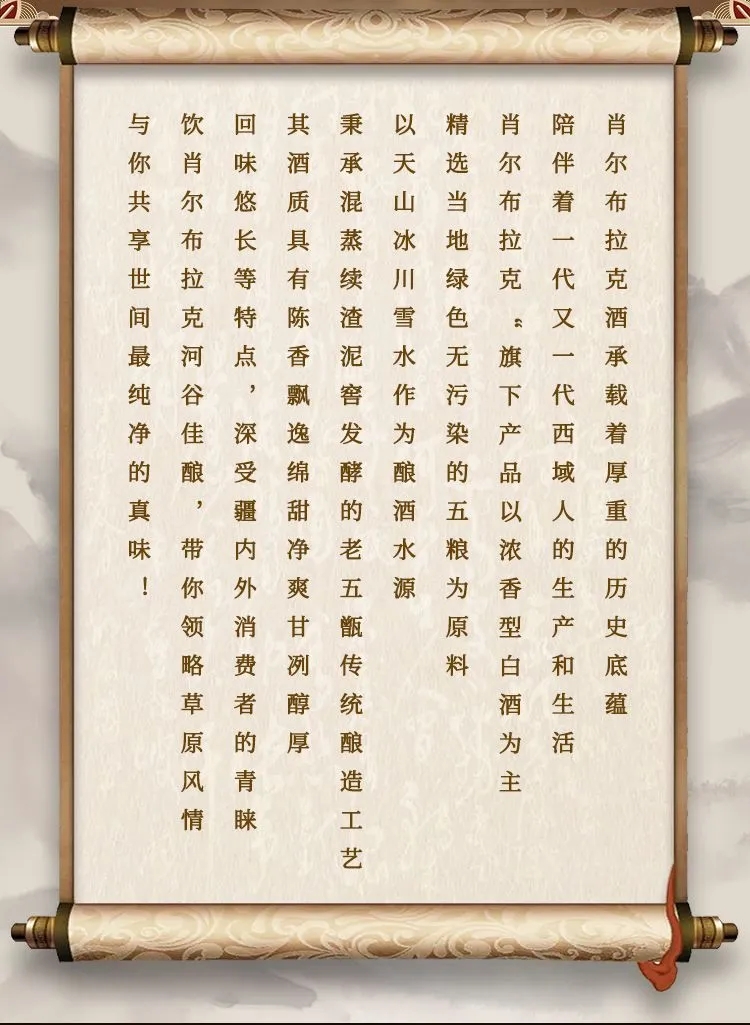 肖尔布拉克酒承载着厚重的历史底蕴
陪伴着一代又一代西域人的生产和生活
肖尔布拉克〝旗下产品以浓香型白酒为主
精选当地绿色无污染的五粮为原料
以天山冰川雪水作为酿酒水源
秉承混蒸续渣泥窖发酵的老五甑传统酿造工艺
其酒质具有陈香飘逸绵甜净爽甘冽醇厚
回味悠长等特点，深受疆内外消费者的青睐
饮肖尔布拉克河谷佳酿，带你领略草原风情
与你共享世间最纯净的真味！